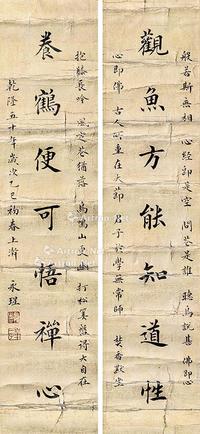 觀魚方能知道性
般若斯無相 心經即是空 問君是誰 聽鳥說甚 佛即心
心即佛 古人所重在大節 君子於學無常師 焚香默坐
養鶴便可悟禪心
抱膝長吟 風定花猶落 鳥鳴山更幽 打松直盤 得大自在
乾隆五十年歲次乙巳 初春上澣 永瑆